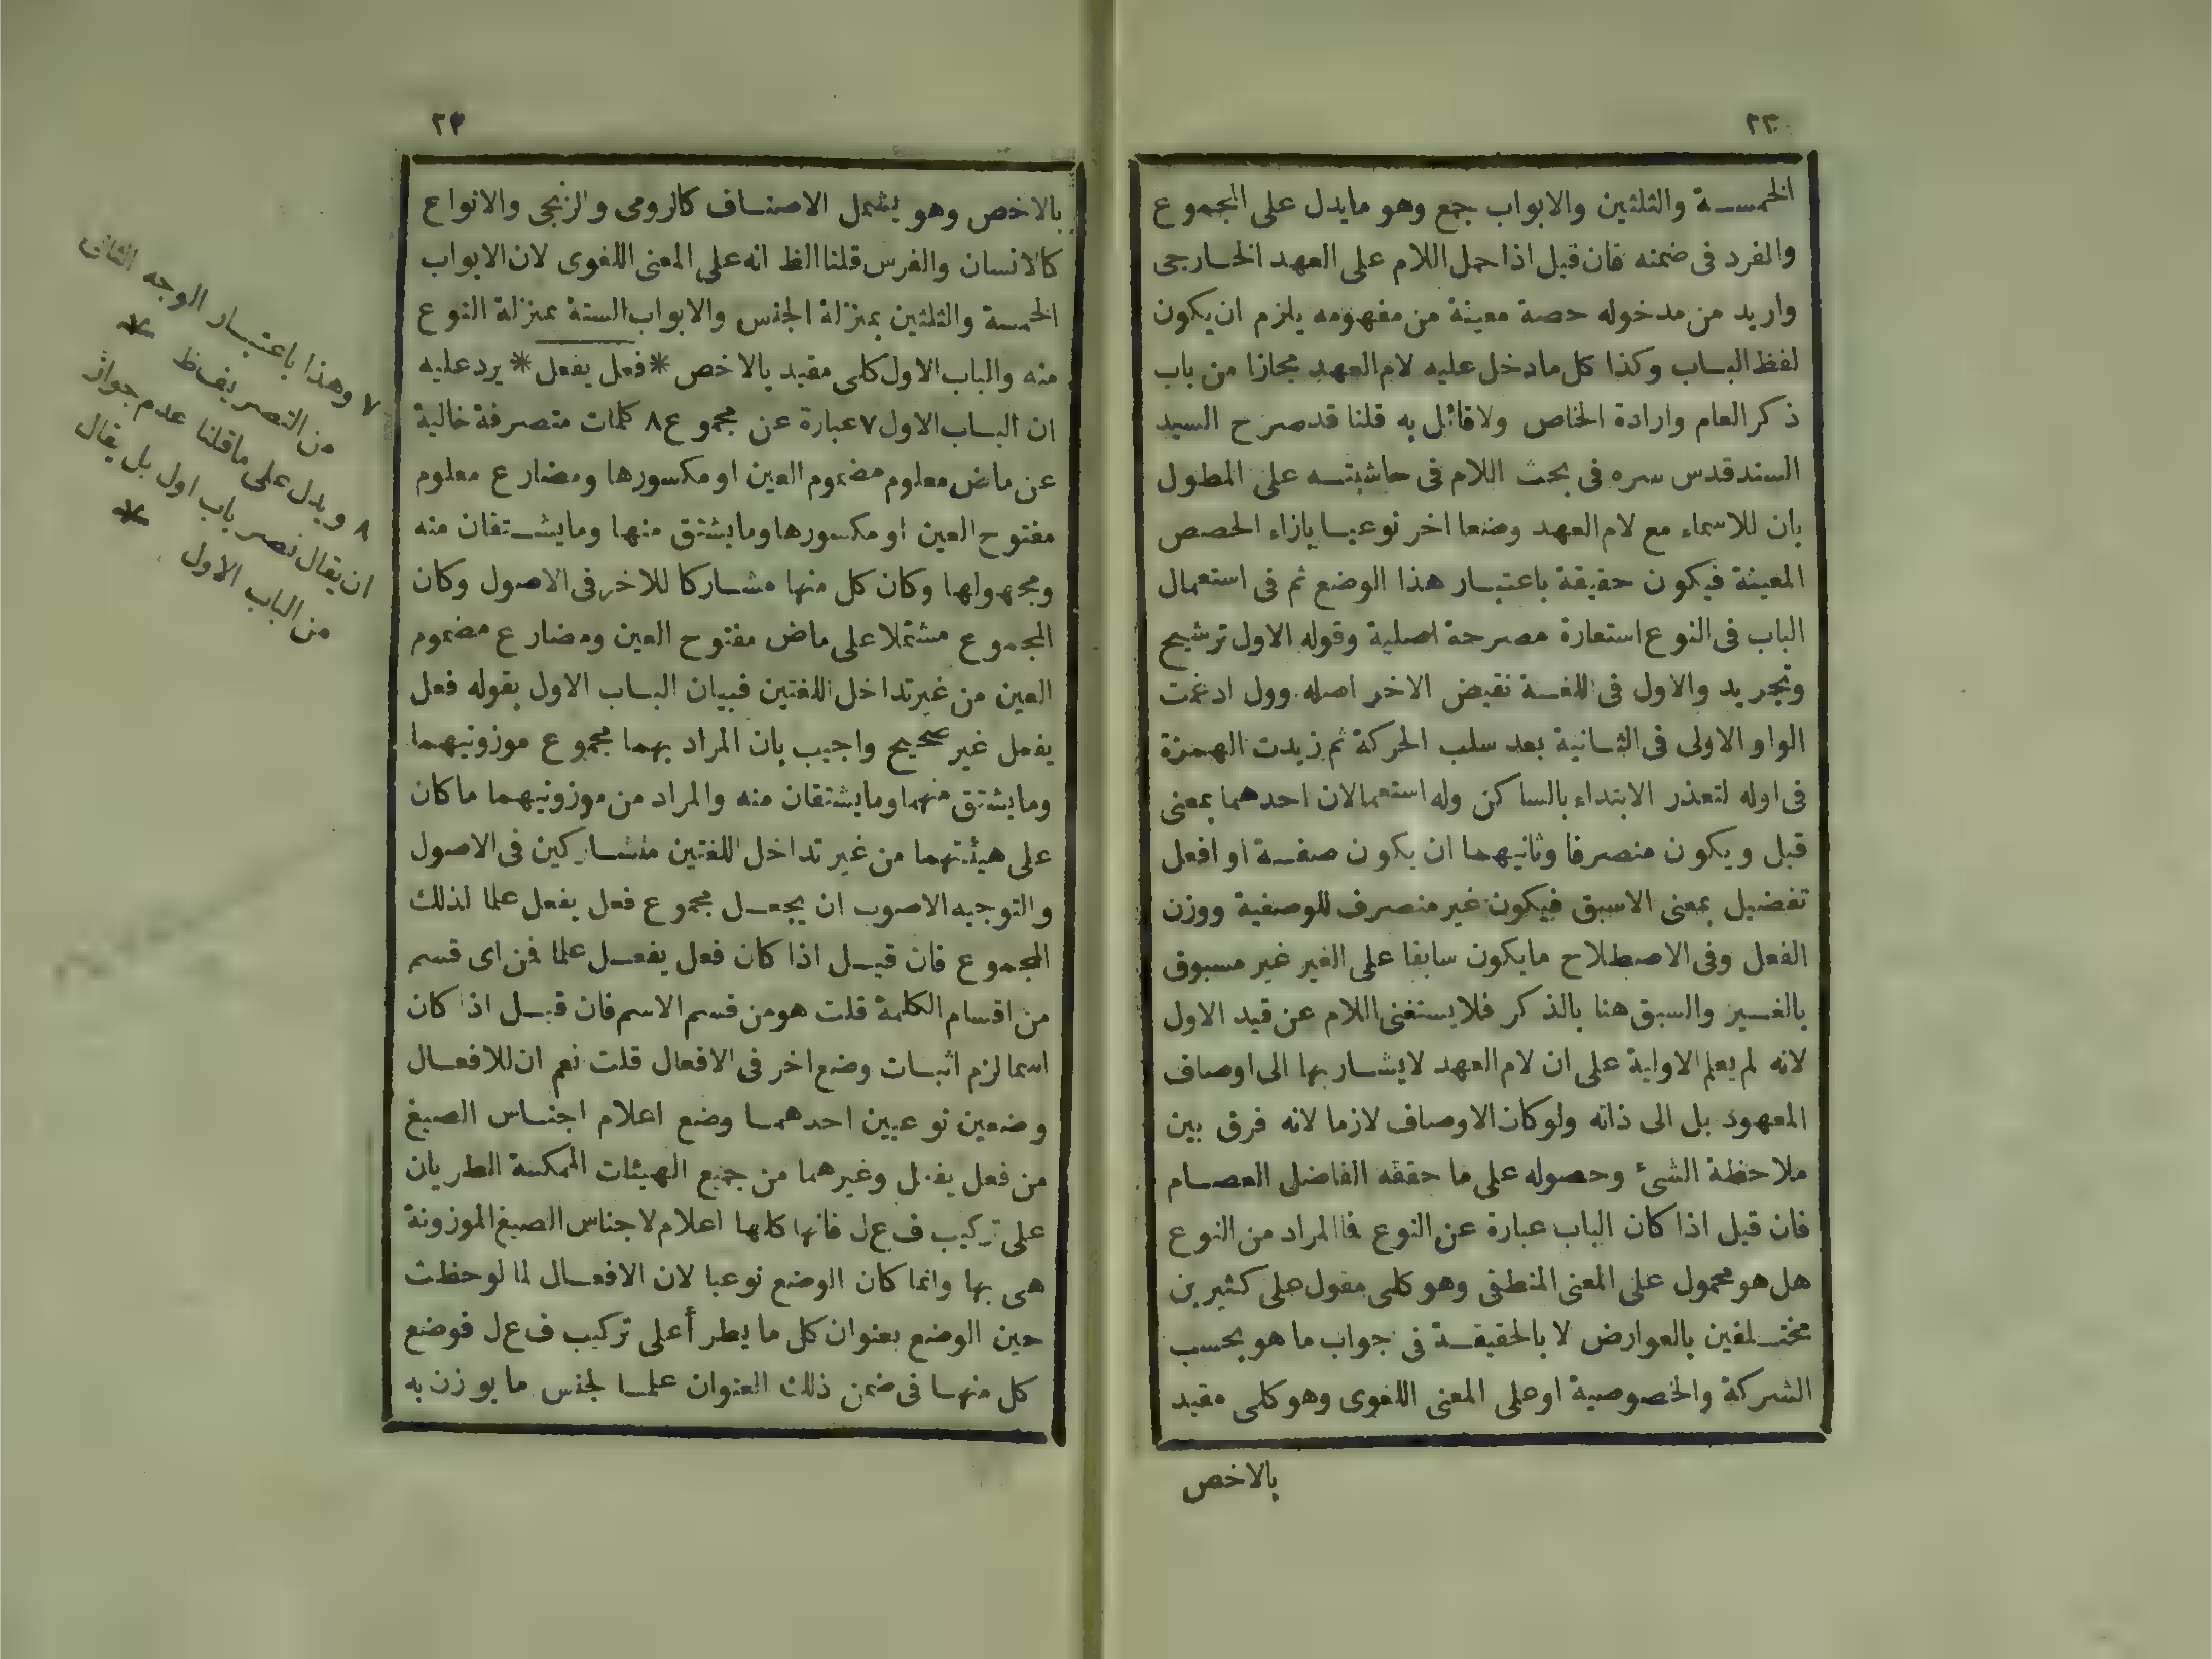 ٢٢
الخمسة والثلثين والابواب جمع وهو مايدل على المجموع
والفرد فى ضمنه فان قيل اذا حمل اللام على العهد الخارجى
واريد من مدخوله حصة معينة من مفهومه يلزم ان يكون
لفظ الباب وكذا كل مادخل عليه لام العهد مجازا من باب
ذكر العام وارادة الخاص ولا قائل به قلنا قد صرح السيد
السند قدس سره فى بحث اللام فى حاشيته على المطول
بان للاسماء مع لام العهد وضعا اخر نوعيا بازاء الحصص
المعينة فيكون حقيقة باعتبار هذا الوضع ثم فى استعمال
الباب فى النوع استعارة مصرحة اصلية وقوله الاول ترشيح
وتجريد والاول فى اللغة نقيض الاخر اصله وول ادغمت
الواو الاولى فى الثانية بعد سلب الحركة ثم زيدت الهمزة
فى اوله لتعذر الابتداء بالساكن وله استعمالان احدهما بمعنى
قبل ويكون منصرفا وثانيهما ان يكون صفة او افعل
تفضيل بمعنى الاسبق فيكون غير منصرف للوصفية ووزن
الفعل وفى الاصطلاح مايكون سابقا على الغير غير مسبوق
بالغير والسبق هنا بالذكر فلا يستغنى اللام عن قيد الاول
لانه لم يعلم الاولية على ان لام العهد لايشار بها الى اوصاف
المعهود بل الى ذاته ولو كان الاوصاف لازما لانه فرق بين
ملاحظة الشئ وحصوله على ما حققه الفاضل العصام
فان قيل اذا كان الباب عبارة عن النوع فما المراد من النوع
هل هو محمول على المعنى المنطقى وهو كلى مقول على كثيرين
مختلفين بالعوارض لا بالحقيقة فى جواب ما هو بحسب
الشركة والخصوصية او على المعنى اللغوى وهو كلى مقيد
بالاخص
٢٣
بالاخص وهو يشمل الاصناف كالرومى والزنجى والانواع
كالانسان والفرس قلنا الظ انه على المعنى اللغوى لان الابواب
الخمسة والثلثين بمنزلة الجنس والابواب الستة بمنزلة النوع
منه والباب الاول كلى مقيد بالاخص * فعل يفعل * يرد عليه
ان الباب الاول ٧ عبارة عن مجموع ٨ كلمات متصرفة خالية
عن ماض معلوم مضموم العين او مكسورها ومضارع معلوم
مفتوح العين او مكسورها ومايشتق منها ومايشتقان منه
ومجهولها وكان كل منها مشاركا للاخر فى الاصول وكان
المجموع مشتملا على ماض مفتوح العين ومضارع مضموم
العين من غير تداخل اللغتين فبيان الباب الاول بقوله فعل
يفعل غير صحيح واجيب بان المراد بهما مجموع موزونيهما
ومايشتق منهما ومايشتقان منه والمراد من موزونيهما ماكان
على هيئتهما من غير تداخل اللغتين متشاركين فى الاصول
والتوجيه الاصوب ان يجعل مجموع فعل يفعل علما لذلك
المجموع فان قيل اذا كان فعل يفعل علما فمن اى قسم
من اقسام الكلمة قلت هو من قسم الاسم فان قيل اذا كان
اسما لزم اثبات وضع اخر فى الافعال قلت نعم ان للافعال
وضعين نوعيين احدهما وضع اعلام اجناس الصيغ
من فعل يفعل وغيرهما من جميع الهيئات الممكنة الطريان
على تركيب ف ع ل فانها كلها اعلام لاجناس الصيغ الموزونة
هى بها وانما كان الوضع نوعيا لان الافعال لما لوحظت
حين الوضع بعنوان كل ما يطرأ على تركيب ف ع ل فوضع
كل منها فى ضمن ذلك العنوان علما لجنس ما يوزن به
٧ وهذا باعتبار الوجه الثانى
من التصريف ط *
٨ ويدل على ماقلنا عدم جواز
ان يقال نصر باب اول بل يقال
من الباب الاول *